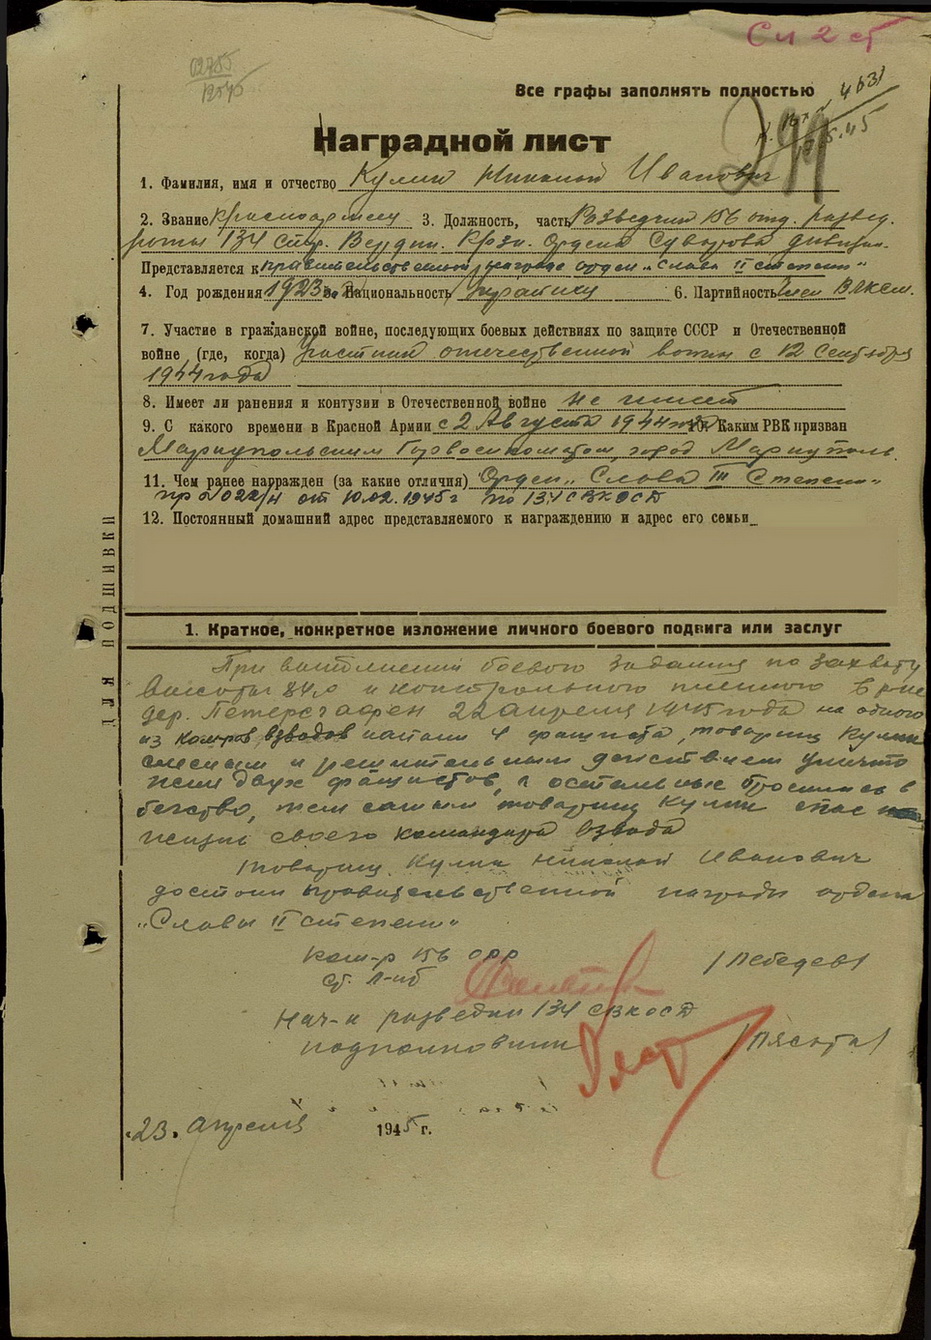 Сл 2 ст
02755
12575
Все графы заполнять полностью
4631
Наградной лист
1. Фамилия, имя и отчество Кулик Николай Иванович
2. Звание красноармеец 3. Должность, часть Разведчик 156 отд. развед.
роты 134 стр. Вердин. Крзн. Ордена Суворова дивизии.
Представляется к правительственной награде орден „Слава II степени"
4. Год рождения 1923 Национальность украинец 6. Партийность член ВЛКСМ.
7. Участие в гражданской войне, последующих боевых действиях по защите СССР и Отечественной
войне (где, когда) Участник отечественной войны с 12 Сентября
1944 года
8. Имеет ли ранения и контузии в Отечественной войне не имеет
9. С какого времени в Красной Армии с 2 Августа 1944 Каким РВК призван
Мариупольским Горвоенкоматом, город Мариуполь
11. Чем ранее награжден (за какие отличия) Орден „Слава III Степени"
пр. 022/н от 10.02.1945 г по 134 СВКОСД
12. Постоянный домашний адрес представляемого к награждению и адрес его семьи
ДЛЯ ПОДШИВКИ
1. Краткое, конкретное изложение личного боевого подвига или заслуг
При выполнении боевого задания по захвату
Высоты 84,0 и контрольного пленного в р-не
дер. Петерсгафен 22 апреля 1945 года на одного
из комров взводов напали 4 фашиста, товарищ Кулик
смелым и решительным действием уничто
жил двух фашистов, а остальные бросились в
бегство, тем самым товарищ Кулик спас
жизнь своего командира взвода
Товарищ Кулик Николай Иванович
достоин правительственной награды ордена
„Славы II степени"
Ком-р 156 ОРР
ст. л-нт /Лебедев/
Нач-к разведки 134 СВКОСД
подполковник /Пясота/
„23" апреля 1945 г.